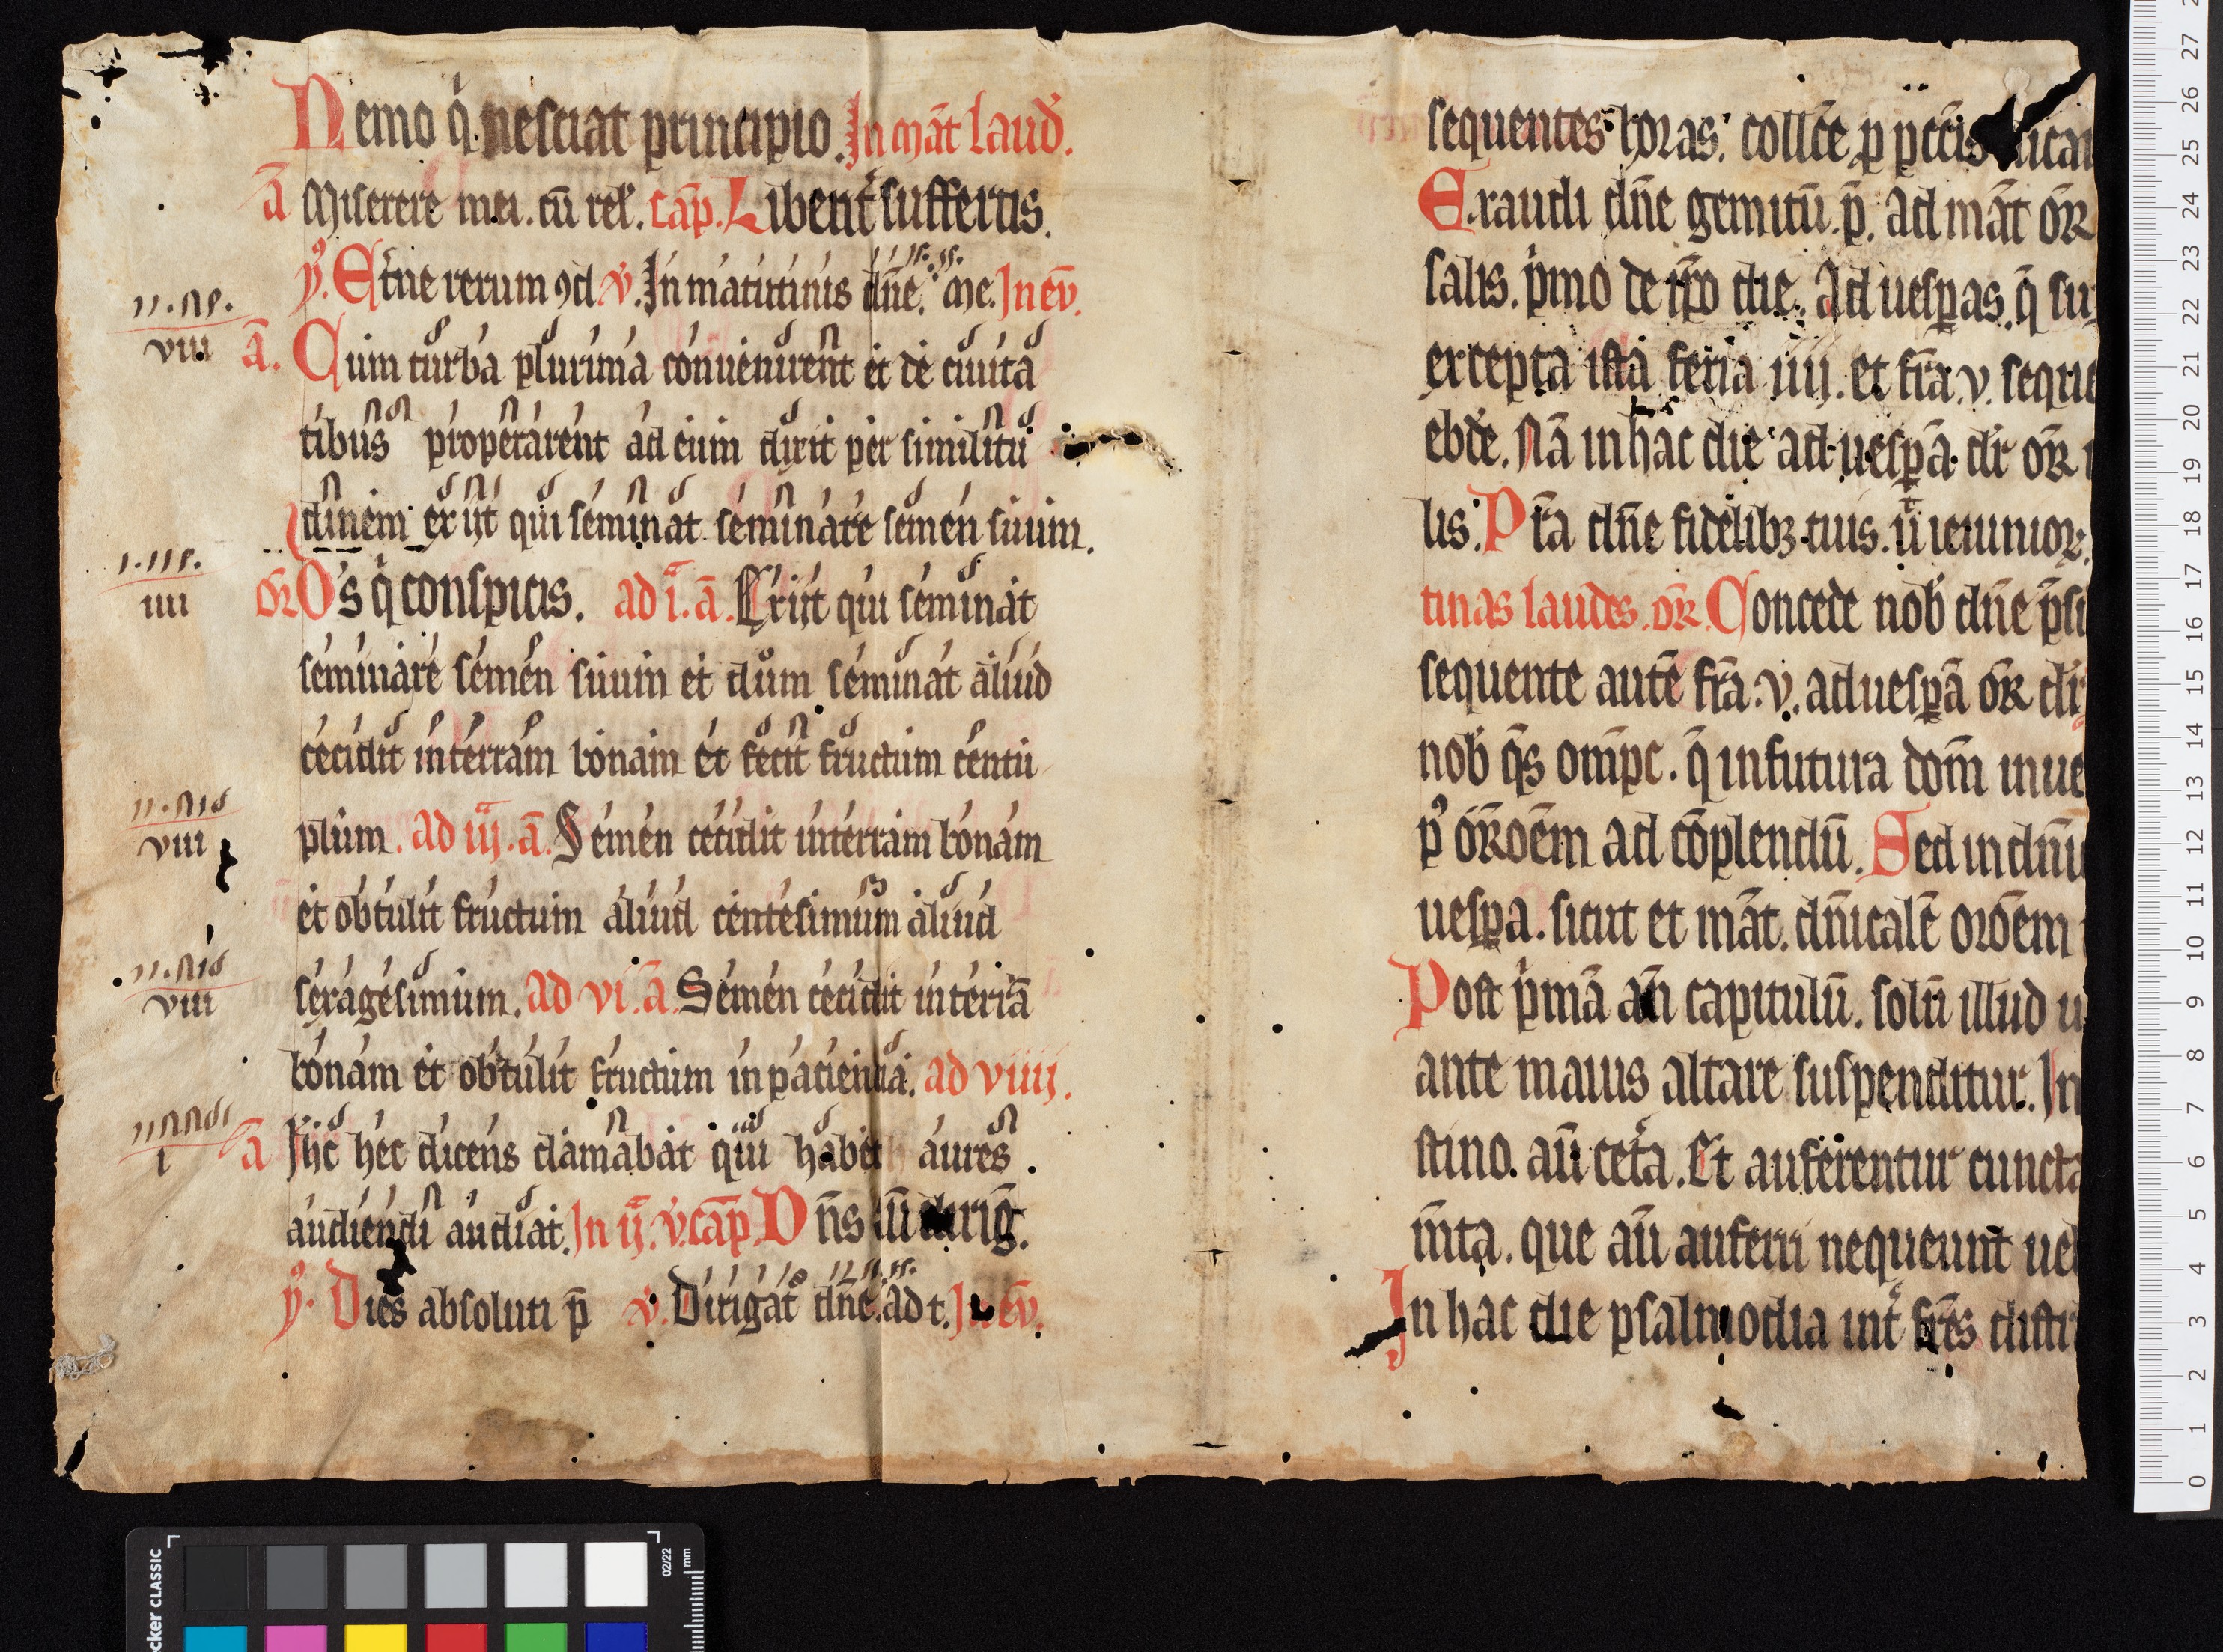 Nemo q̇ nesciat principio. In mat̄ laud̄.
a̅ Miserere mei. cū rel'. cap̄. Libent̄ suffertis.
y̾. Et̾ne rerum ꝯd v̾. In matutinis dn̄e. me. In ev̄.
11.
viii a̅. Cum turba plurima conuenirent et de ciuita
tibus properarent ad eum dixit per similitu
dinem exiit qui seminat seminare semen suum.
1.111.
iiii or̄ D's q̇ conspicis. ad i̅. a̅. Exiit qui seminat
seminare semen suum et dum seminat aliud
cecidit in terram bonam et fecit fructum centu
viii plum. ad iij̅. a̅. Semen cecidit in terram bonam
et obtulit fructum aliud centesimum aliud
viii sexagesimum. ad vi̅. a̅. Semen cecidit in terrā
bonam et obtulit fructum in paciencia. ad viiij.
i a̅ Ihc̄ hec dicens clamabat qui habet aures.
audiendi audiat. In ij̅. v̾. cap̄. Dn̄s aū dirig̾.
y̾. Dies absoluti p̄ v̾. Dirigat̾ dn̄e. ad t. In ev̄.
sequentes horas. collc̄e p pcc̄is
Exaudi dn̄e gemitū p̄. ad mat̄ or̄
salis. p̾mo de ip̄o die. Ad uesꝑas. q̄ su
excepta ista feria iiij. et fr̄a. v. seque
ebd̄e. Nā in hac die ad uesꝑā dr̄ or̄
lis. Pr̄a dn̄e fidelibꝫ tuis. ū ieiunioꝝ.
tinas laudes. or̄. Concede nob̄ dn̄e p̄si
sequente autē fr̄a. v. ad uesꝑā or̄ dr̄
nob̄ q̄s om̄pc. q̄ in futura dom̄ inue
p̾ or̄oēm ad cōplendū. Sed in dn̄i
uesꝑa. sicut et mat̄. dn̄icalē oroēm
Post p̾mā an̄ capitulū. solū illud u
ante maius altare suspenditur. In
stino. aū cet̾a. Et auferentur cuncta
m̄ta. que aū auferri nequeunt uel
In hac die psalmodia int̾ fr̄es disti
27
26
25
24
23
22
21
20
19
18
17
16
15
14
13
12
11
10
9
8
7
6
5
4
3
2
1
0
cker CLASSIC
02/22
mm